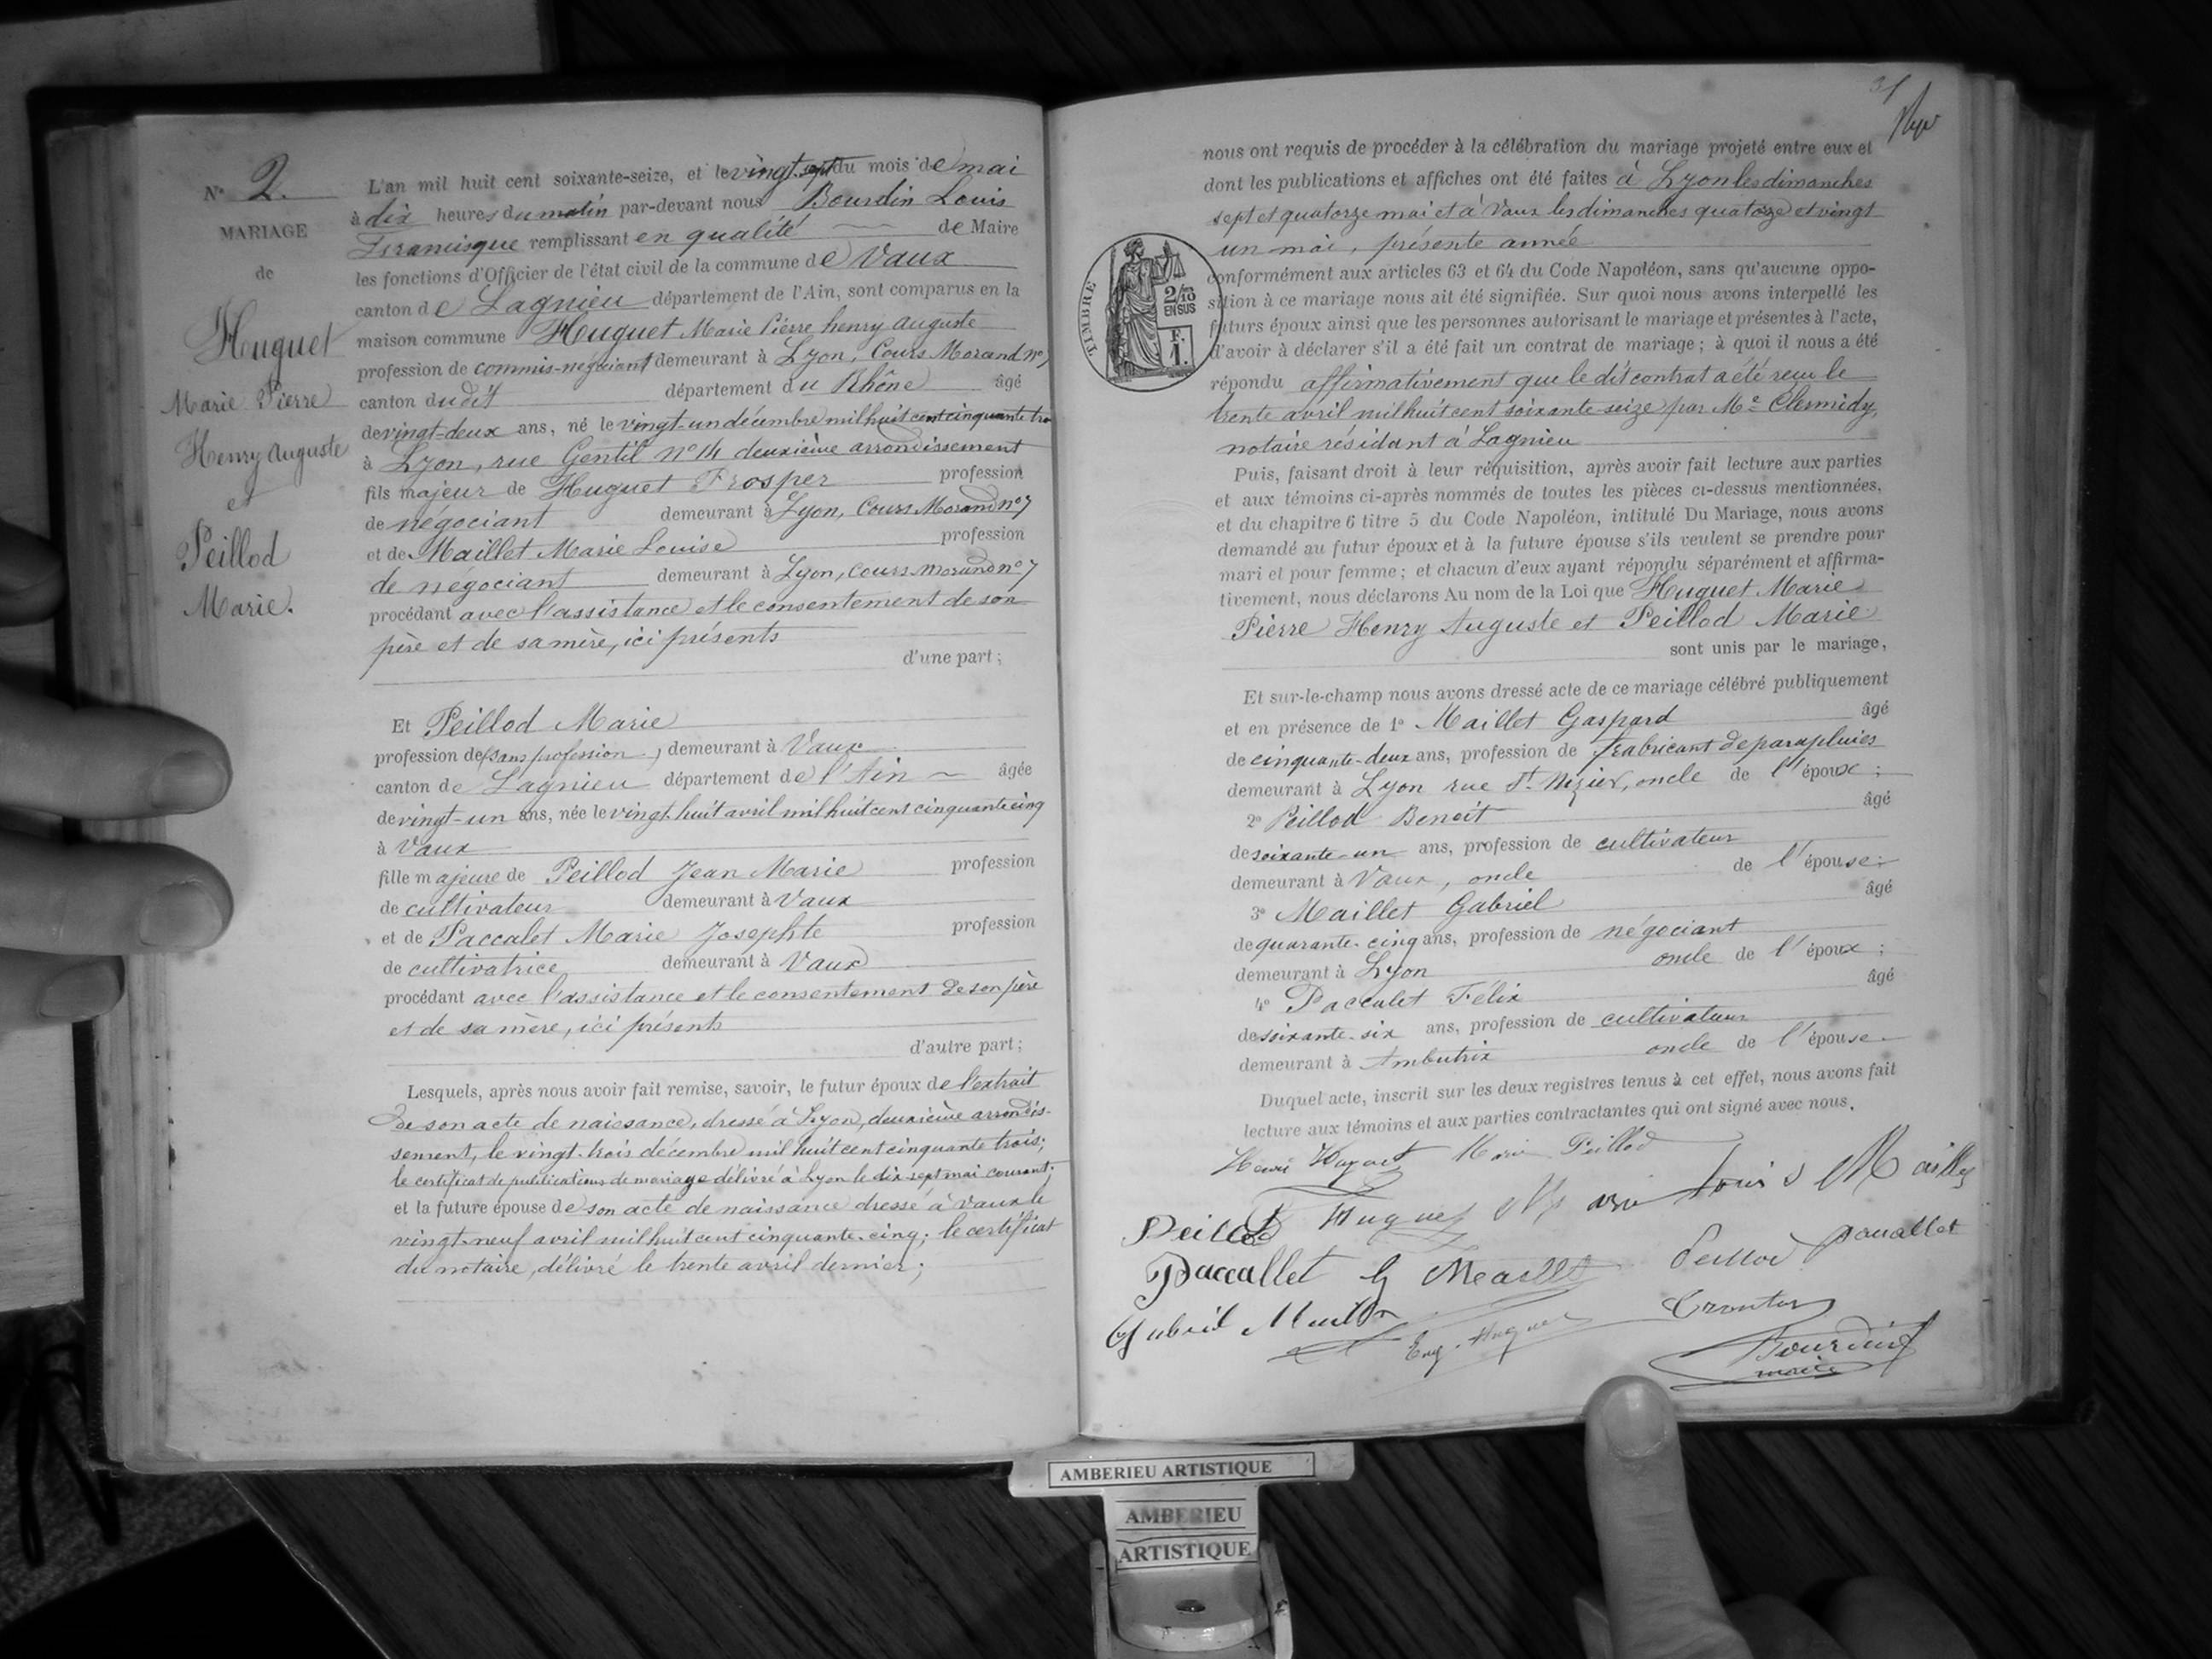 N° 2.
MARIAGE
de
Huguet
Marie Pierre
Henry Auguste
et
Peillod
Marie.
L'an mil huit cent soixante-seize, et le vingt-sept du mois de mai
à dix heures du matin par-devant nous Bourdin Louis
Francisque remplissant en qualité de Maire
les fonctions d'Officier de l'état civil de la commune de Vaux
canton de Lagnieu département de l'Ain, sont comparus en la
maison commune Huguet Marie Pierre henry auguste
profession de commis-négociant demeurant à Lyon, Cours Morand n° 7
canton dudit département du Rhône âgé
de vingt-deux ans, né le vingt-un décembre mil huit cent cinquante trois
à Lyon, rue Gentil n° 14 deuxième arrondissement
fils majeur de Huguet Prosper profession
de négociant demeurant à Lyon, Cours Morand n° 7
et de Maillet Marie Louise profession
de négociant demeurant à Lyon, cours morand n° 7
procédant avec l'assistance et le consentement de son
père et de sa mère, ici présents
d'une part ;
Et Peillod Marie
profession de (sans profession) demeurant à Vaux
canton de Lagnieu département de l'Ain âgée
de vingt-un ans, née le vingt-huit avril mil huit cent cinquante cinq
à Vaux
fille majeure de Peillod Jean Marie profession
de cultivateur demeurant à Vaux
et de Paccalet Marie Josephte profession
de cultivatrice demeurant à Vaux
procédant avec l'assistance et le consentement de son père
et de sa mère, ici présents
d'autre part ;
Lesquels, après nous avoir fait remise, savoir, le futur époux de l'extrait
de son acte de naissance, dressé à Lyon, deuxième arrondis-
sement, le vingt-trois décembre mil huit cent cinquante trois;
le certificat de publications de mariage délivré à Lyon le dix-sept mai courant;
et la future épouse de son acte de naissance dressé à Vaux le
vingt-neuf avril mil huit cent cinquante-cinq; le certificat
du notaire, délivré le trente avril dernier;
31
nous ont requis de procéder à la célébration du mariage projeté entre eux et
dont les publications et affiches ont été faites à Lyon les dimanches
sept et quatorze mai et à Vaux les dimanches quatorze et vingt
un mai, présente année
conformément aux articles 63 et 64 du Code Napoléon, sans qu'aucune oppo-
sition à ce mariage nous ait été signifiée. Sur quoi nous avons interpellé les
futurs époux ainsi que les personnes autorisant le mariage et présentes à l'acte,
d'avoir à déclarer s'il a été fait un contrat de mariage ; à quoi il nous a été
répondu affirmativement que le dit contrat a été reçu le
trente avril mil huit cent soixante-seize par Me Clermidy,
notaire résidant à Lagnieu
TIMBRE
2/10
EN SUS
F.
1.
Puis, faisant droit à leur réquisition, après avoir fait lecture aux parties
et aux témoins ci-après nommés de toutes les pièces ci-dessus mentionnées,
et du chapitre 6 titre 5 du Code Napoléon, intitulé Du Mariage, nous avons
demandé au futur époux et à la future épouse s'ils veulent se prendre pour
mari et pour femme ; et chacun d'eux ayant répondu séparément et affirma-
tivement, nous déclarons Au nom de la Loi que Huguet Marie
Pierre Henry Auguste et Peillod Marie
sont unis par le mariage,
Et sur-le-champ nous avons dressé acte de ce mariage célébré publiquement
et en présence de 1° Maillet Gaspard âgé
de cinquante-deux ans, profession de fabricant de parapluies
demeurant à Lyon rue St. Nizier, oncle de l'époux ;
2° Peillod Benoit âgé
de soixante-un ans, profession de cultivateur
demeurant à Vaux, oncle de l'épouse ;
3° Maillet Gabriel âgé
de quarante-cinq ans, profession de négociant
demeurant à Lyon oncle de l'époux ;
4° Paccalet Félix âgé
de soixante-six ans, profession de cultivateur
demeurant à Ambutrix oncle de l'épouse.
Duquel acte, inscrit sur les deux registres tenus à cet effet, nous avons fait
lecture aux témoins et aux parties contractantes qui ont signé avec nous.
Henri Huguet Marie Peillod
Peillod Huguet Marie Louis Maillet
Paccallet G Maillet Peillod Paccallet
Gabriel Maillet
Eug. Huguet
Bourdin
maire
AMBERIEU ARTISTIQUE
AMBERIEU
ARTISTIQUE